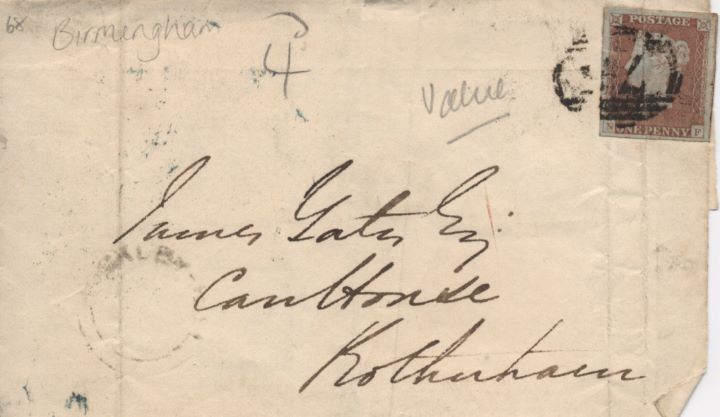 68 Birmingham
4
Value
POSTAGE
ONE PENNY
F
James Yates Esq
Carr House
Rotherham